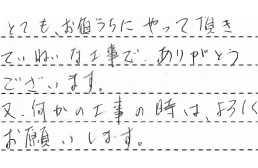 とても、お値うちに やって頂き
ていねいな工事で、ありがとう
ございます。
又、何かの工事の時は、よろしく
お願いします。